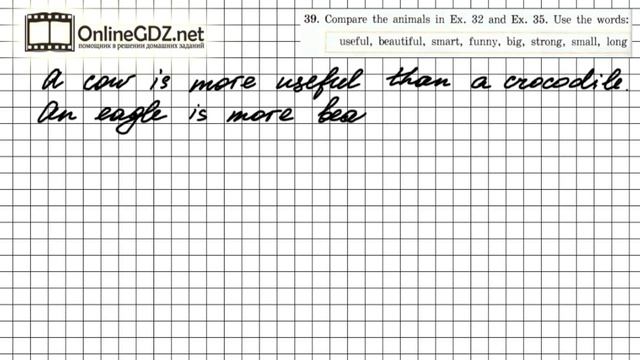 OnlineGDZ.net
помощник в решении домашних заданий
39. Compare the animals in Ex. 32 and Ex. 35. Use the words:
useful, beautiful, smart, funny, big, strong, small, long
A cow is more useful than a crocodile.
An eagle is more bea